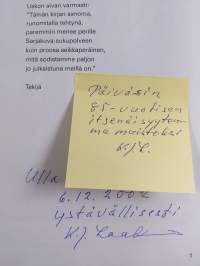 Uskon aivan varmasti:
"Tämän kirjan sanoma,
runomitalla tehtynä,
paremmin menee perille
Sarjakuva-sukupolveen
kuin proosa seikkaperäinen,
mitä sodistamme paljon
jo julkaistuna meillä on."
Tekijä
Päiväsin
85-vuotisen
itsenäisyytem
me muistoksi
K.J.L.
Ulla
6.12.2002
ystävällisesti
K.J.
1